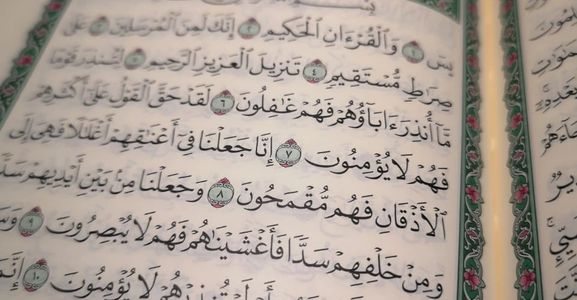 بِسْمِ
يسٓ ١ وَٱلْقُرْءَانِ ٱلْحَكِيمِ ٢ إِنَّكَ لَمِنَ ٱلْمُرْسَلِينَ ٣ عَلَىٰ
صِرَٰطٍ مُّسْتَقِيمٍ ٤ تَنزِيلَ ٱلْعَزِيزِ ٱلرَّحِيمِ ٥ لِتُنذِرَ قَوْمًا
مَّآ أُنذِرَ ءَابَآؤُهُمْ فَهُمْ غَٰفِلُونَ ٦ لَقَدْ حَقَّ ٱلْقَوْلُ عَلَىٰٓ أَكْثَرِهِمْ
فَهُمْ لَا يُؤْمِنُونَ ٧ إِنَّا جَعَلْنَا فِىٓ أَعْنَٰقِهِمْ أَغْلَٰلًا فَهِىَ إِلَى
ٱلْأَذْقَانِ فَهُم مُّقْمَحُونَ ٨ وَجَعَلْنَا مِنۢ بَيْنِ أَيْدِيهِمْ سَدًّا
وَمِنْ خَلْفِهِمْ سَدًّا فَأَغْشَيْنَٰهُمْ فَهُمْ لَا يُبْصِرُونَ ٩
تُنذِرْهُمْ لَا يُؤْمِنُونَ ١٠